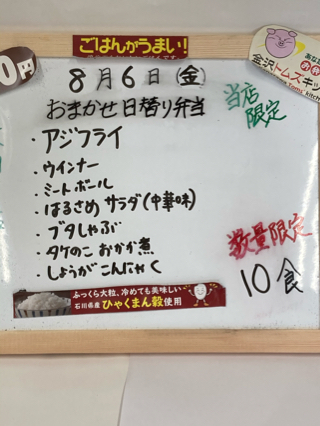 ごはんがうまい!
0円
8月6日(金)
おまかせ日替り弁当
当店
限定
・アジフライ
・ウインナー
・ミートボール
・はるさめサラダ(中華味)
・ブタしゃぶ
・タケのこおかか煮
・しょうがこんにゃく
数量限定
10食
ふっくら大粒、冷めても美味しい
石川県産 ひゃくまん穀 使用
金沢トムズキッ